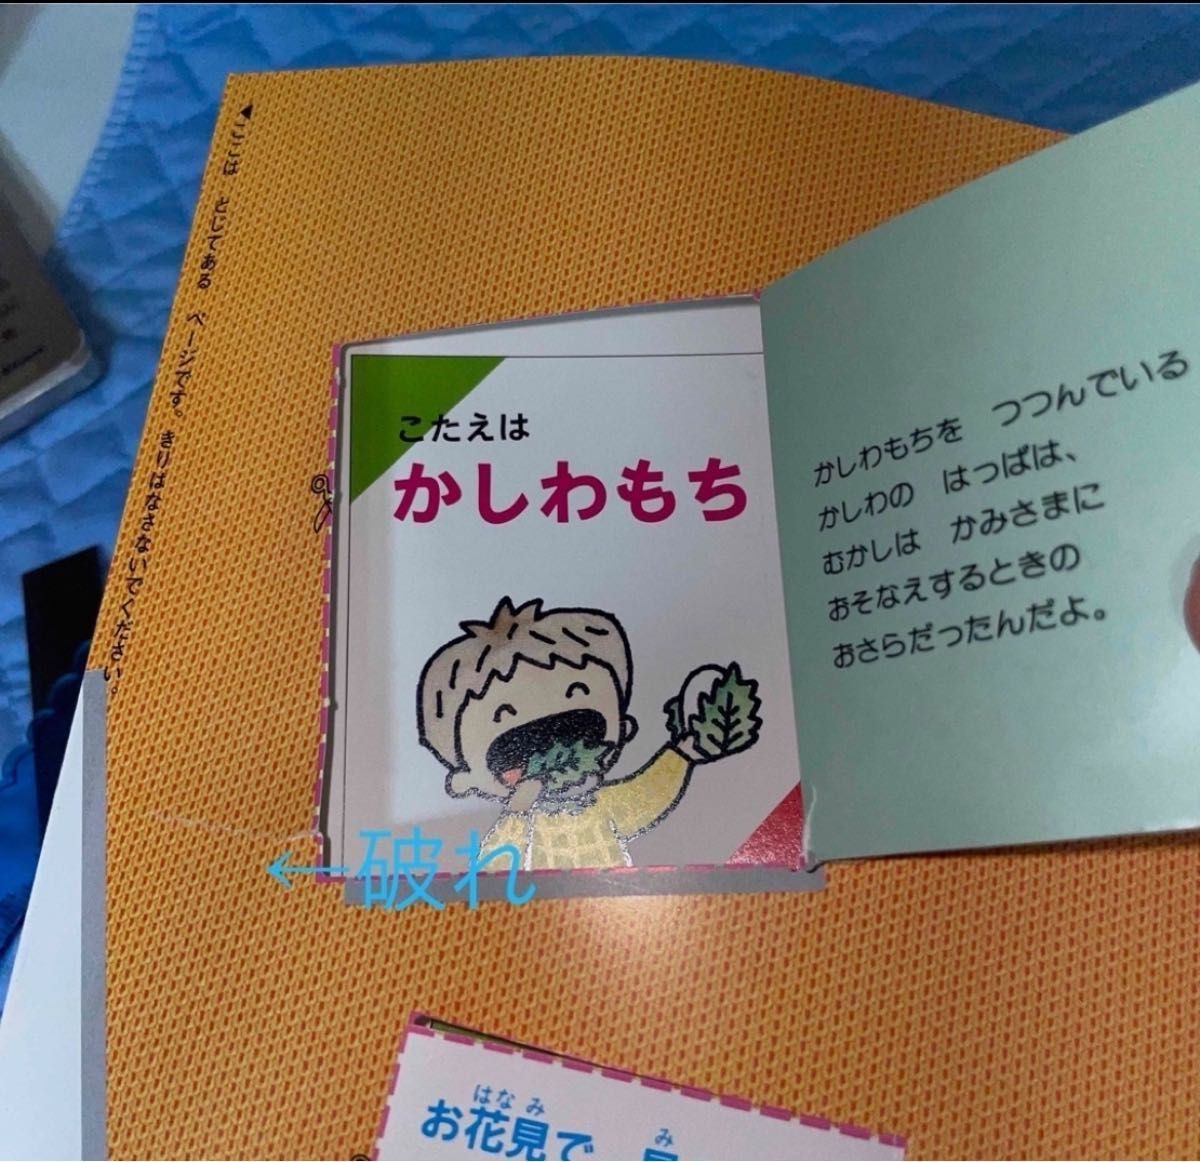 ◀ここは　とじてある　ページです。きりはなさないでください。
こたえは
かしわもち
かしわもちを　つつんでいる
かしわの　はっぱは、
むかしは　かみさまに
おそなえするときの
おさらだったんだよ。
←破れ
お花見で
はなみ
み